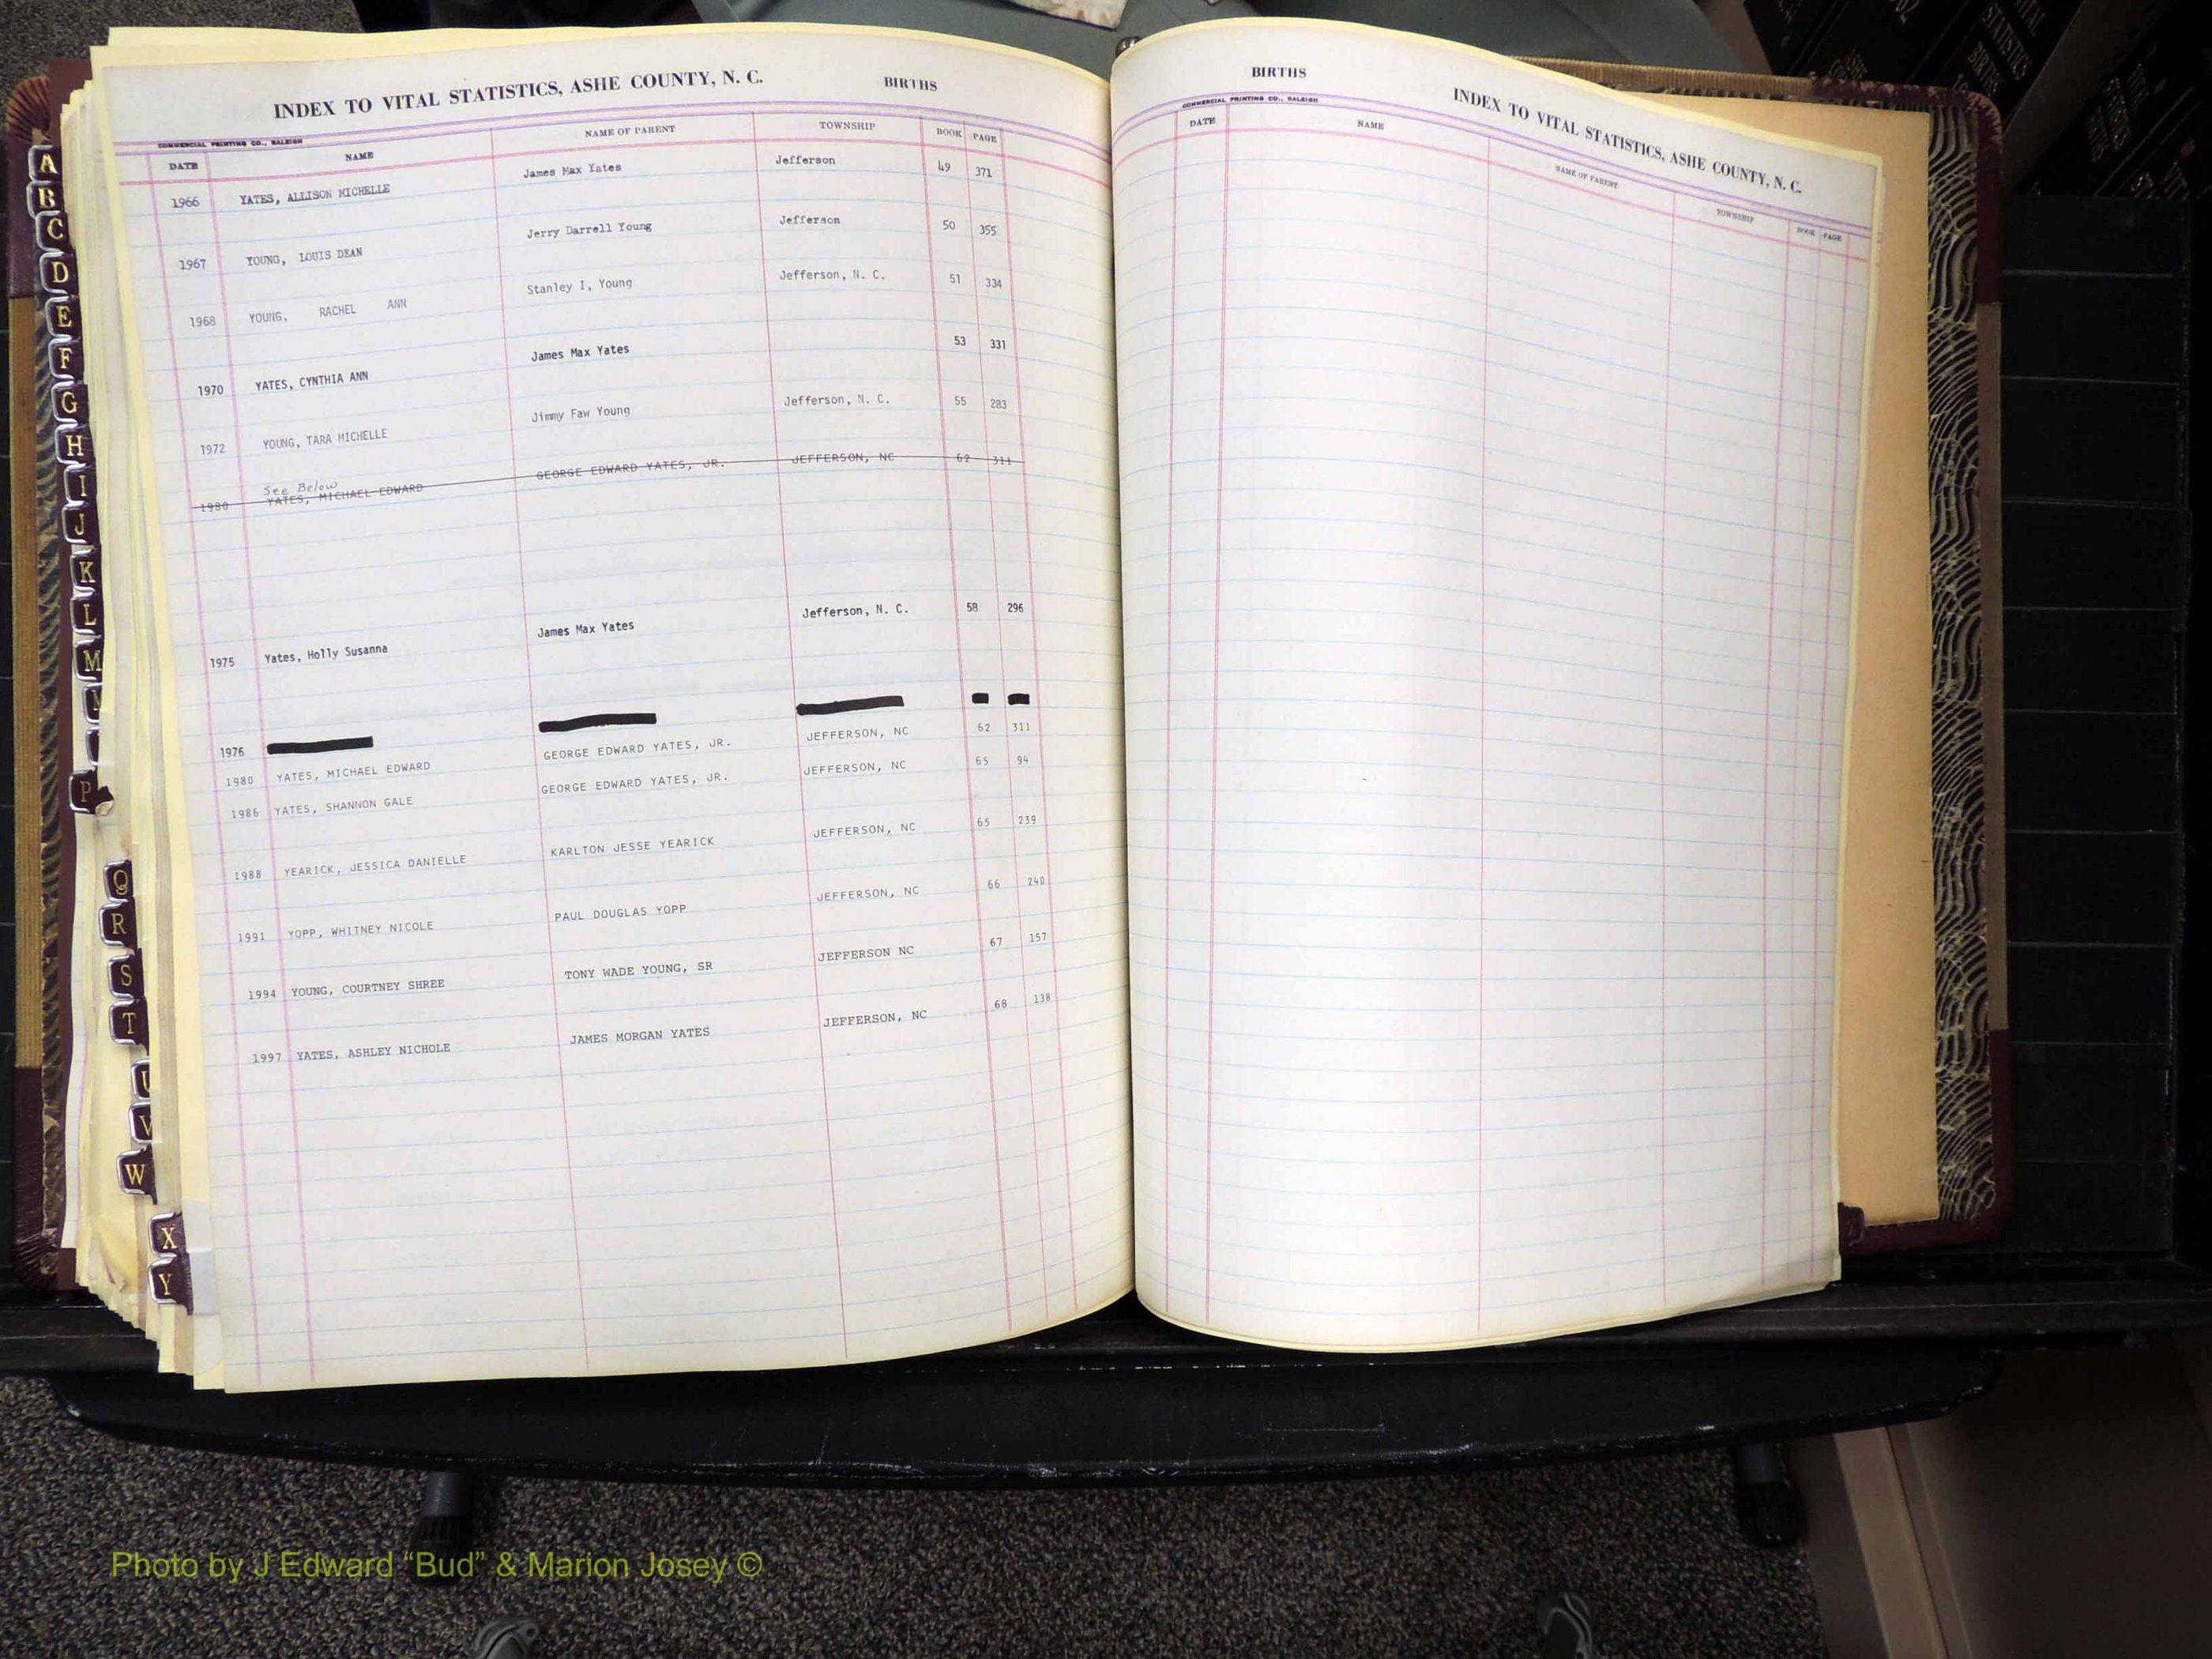 INDEX TO VITAL STATISTICS, ASHE COUNTY, N. C. BIRTHS
COMMERCIAL PRINTING CO., RALEIGH
DATE NAME NAME OF PARENT TOWNSHIP BOOK PAGE
1966 YATES, ALLISON MICHELLE James Max Yates Jefferson 49 371
1967 YOUNG, LOUIS DEAN Jerry Darrell Young Jefferson 50 355
1968 YOUNG, RACHEL ANN Stanley I, Young Jefferson, N. C. 51 334
1970 YATES, CYNTHIA ANN James Max Yates 53 331
1972 YOUNG, TARA MICHELLE Jimmy Faw Young Jefferson, N. C. 55 283
See Below
1980 YATES, MICHAEL EDWARD GEORGE EDWARD YATES, JR. JEFFERSON, NC 62 311
1975 Yates, Holly Susanna James Max Yates Jefferson, N. C. 58 296
1976
1980 YATES, MICHAEL EDWARD GEORGE EDWARD YATES, JR. JEFFERSON, NC 62 311
1986 YATES, SHANNON GALE GEORGE EDWARD YATES, JR. JEFFERSON, NC 65 94
1988 YEARICK, JESSICA DANIELLE KARLTON JESSE YEARICK JEFFERSON, NC 65 239
1991 YOPP, WHITNEY NICOLE PAUL DOUGLAS YOPP JEFFERSON, NC 66 240
1994 YOUNG, COURTNEY SHREE TONY WADE YOUNG, SR JEFFERSON NC 67 157
1997 YATES, ASHLEY NICHOLE JAMES MORGAN YATES JEFFERSON, NC 68 138
BIRTHS INDEX TO VITAL STATISTICS, ASHE COUNTY, N. C.
COMMERCIAL PRINTING CO., RALEIGH
DATE NAME NAME OF PARENT TOWNSHIP BOOK PAGE
A
B
C
D
E
F
G
H
I
J
K
L
M
N
P
Q
R
S
T
U
V
W
X
Y
VITAL
STATISTICS
BIRTHS
Photo by J Edward “Bud” & Marion Josey ©